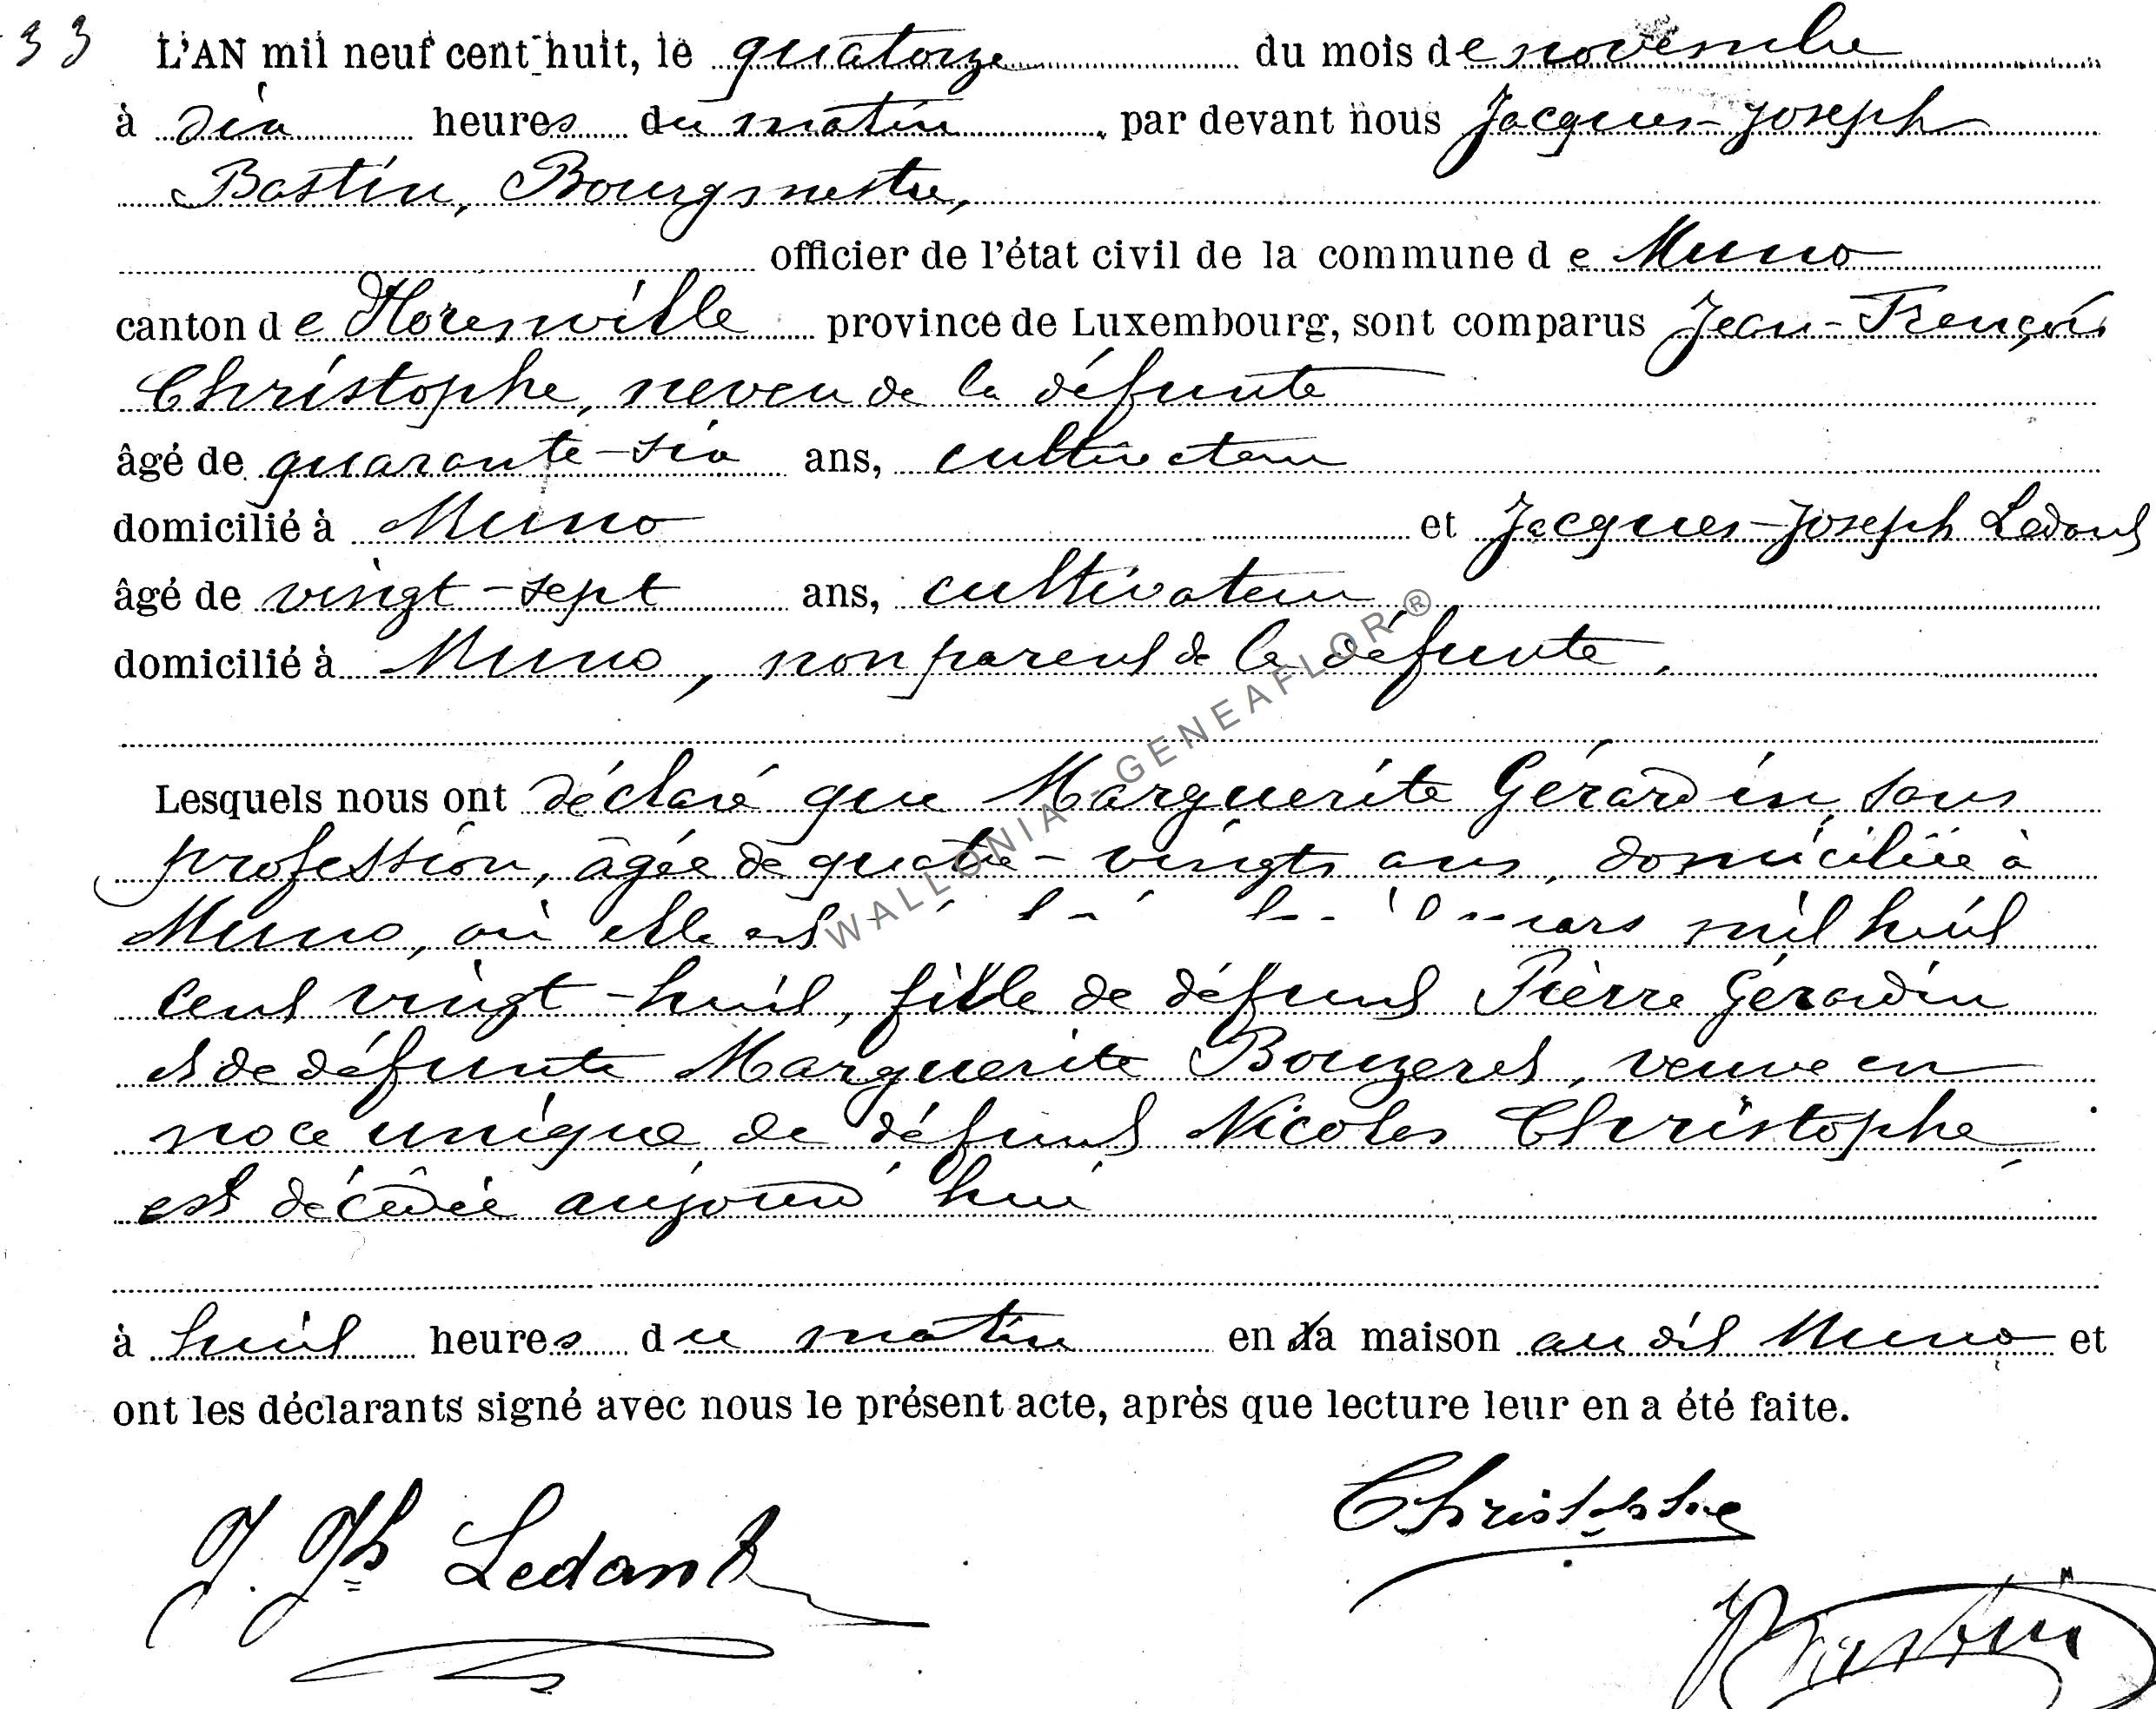 33 L'AN mil neuf cent huit, le quatorze du mois de novembre
à dix heures du matin, par devant nous Jacques-Joseph
Bastin, Bourgmestre,
officier de l'état civil de la commune de Muno
canton de Florenville province de Luxembourg, sont comparus Jean-François
Christophe, neveu de la défunte
âgé de quarante-six ans, cultivateur
domicilié à Muno et Jacques-Joseph Ledant
âgé de vingt-sept ans, cultivateur,
domicilié à Muno, non parent de la défunte.
Lesquels nous ont déclaré que Marguerite Gérardin, sans
profession, âgée de quatre-vingts ans, domiciliée à
Muno, où elle est mars mil huit
cent vingt-huit, fille de défunt Pierre Gérardin
et de défunte Marguerite Bouzeret, veuve en
noce unique de défunt Nicolas Christophe
est décédée aujourd'hui
à huit heures du matin en sa maison au dit Muno et
ont les déclarants signé avec nous le présent acte, après que lecture leur en a été faite.
Christophe
J. Jh Ledant
Bastin
WALLONIA-GENEAFLOR®